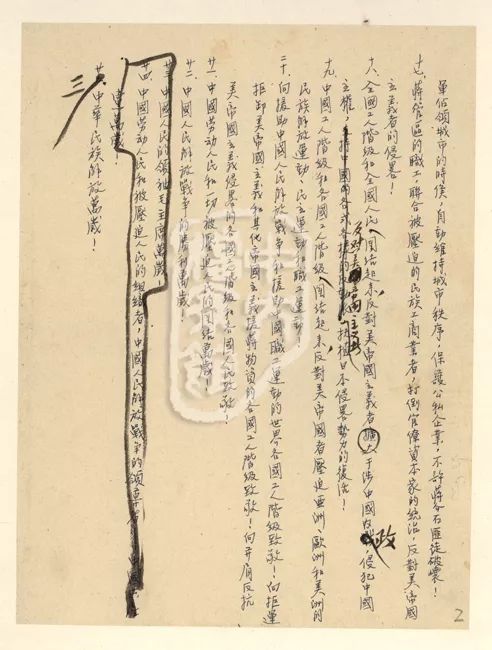 軍佔領城市的時候,自動維持城市秩序,保護公私企業,不許蔣介石匪徒破壞!
十七、蔣管區的職工,聯合被壓迫的民族工商業者,打倒官僚資本家的統治,反對美帝國
主義者的侵畧!
十八、全國工人階級和全國人民團結起來,反對美帝國主義者擴大干涉中國內政,侵犯中國
主權,反對美帝國主義扶植日本侵畧勢力的復活!
十九、中國工人階級和各國工人階級團結起來,反對美帝國者壓迫亞洲、歐洲和美洲的
民族解放運動,民主運動和職工運動!
二十、向援助中國人民解放戰爭和援助中國職工運動的世界各國工人階級致敬!向拒運
拒卸美帝國主義和其他帝國主義援蔣物資的各國工人階級致敬!向并肩反抗
美帝國主義侵畧的各國工人階級和各國人民致敬!
廿一、中國勞動人民和一切被壓迫人民的團結萬歲!
廿二、中國人民解放戰爭的勝利萬歲
廿三、中國人民的領袖毛主席萬歲
廿四、中國勞動人民和被壓迫人民的組織者,中國人民解放戰爭的領導者
萬歲!
三
中華民族解放萬歲!
2